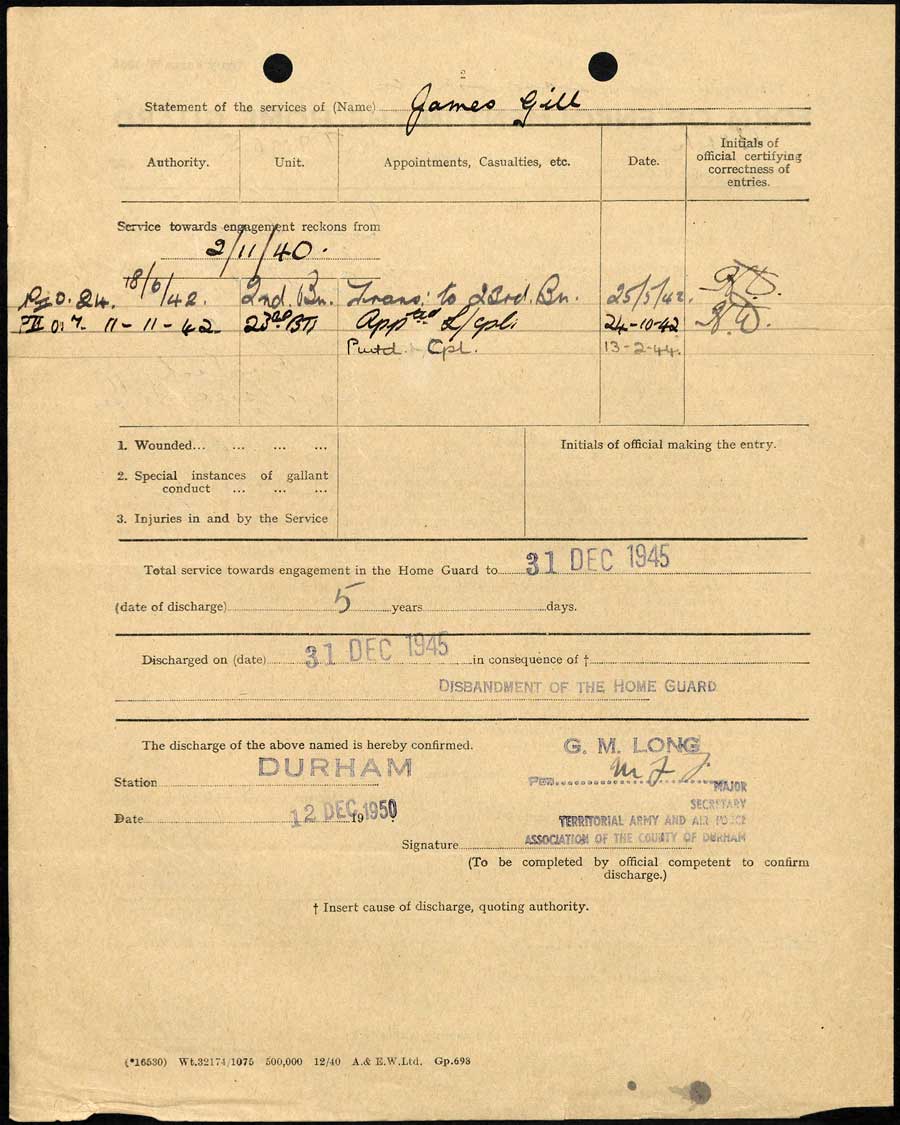 2
Statement of the services of (Name) James Gill
Authority.
Unit.
Appointments, Casualties, etc.
Date.
Initials of
official certifying
correctness of
entries.
Service towards engagement reckons from
2/11/40.
O. 24. 18/6/42. 2nd. Bn. Trans: to 23rd. Bn. 25/5/42.
PII O. 7. 11-11-42. 23rd BN Appted L/cpl. 24-10-42
Cpl. 13-2-44.
1. Wounded... ... ... ...
Initials of official making the entry.
2. Special instances of gallant
conduct ... ... ...
3. Injuries in and by the Service
Total service towards engagement in the Home Guard to 31 DEC 1945
(date of discharge) 5 years days.
Discharged on (date) 31 DEC 1945 in consequence of †
DISBANDMENT OF THE HOME GUARD
The discharge of the above named is hereby confirmed.
G. M. LONG
Station DURHAM
MAJOR
SECRETARY
Date 12 DEC 1950 19
TERRITORIAL ARMY AND AIR FORCE
ASSOCIATION OF THE COUNTY OF DURHAM
Signature
(To be completed by official competent to confirm
discharge.)
† Insert cause of discharge, quoting authority.
(*16530) Wt.32174/1075 500,000 12/40 A.& E.W.Ltd. Gp.698